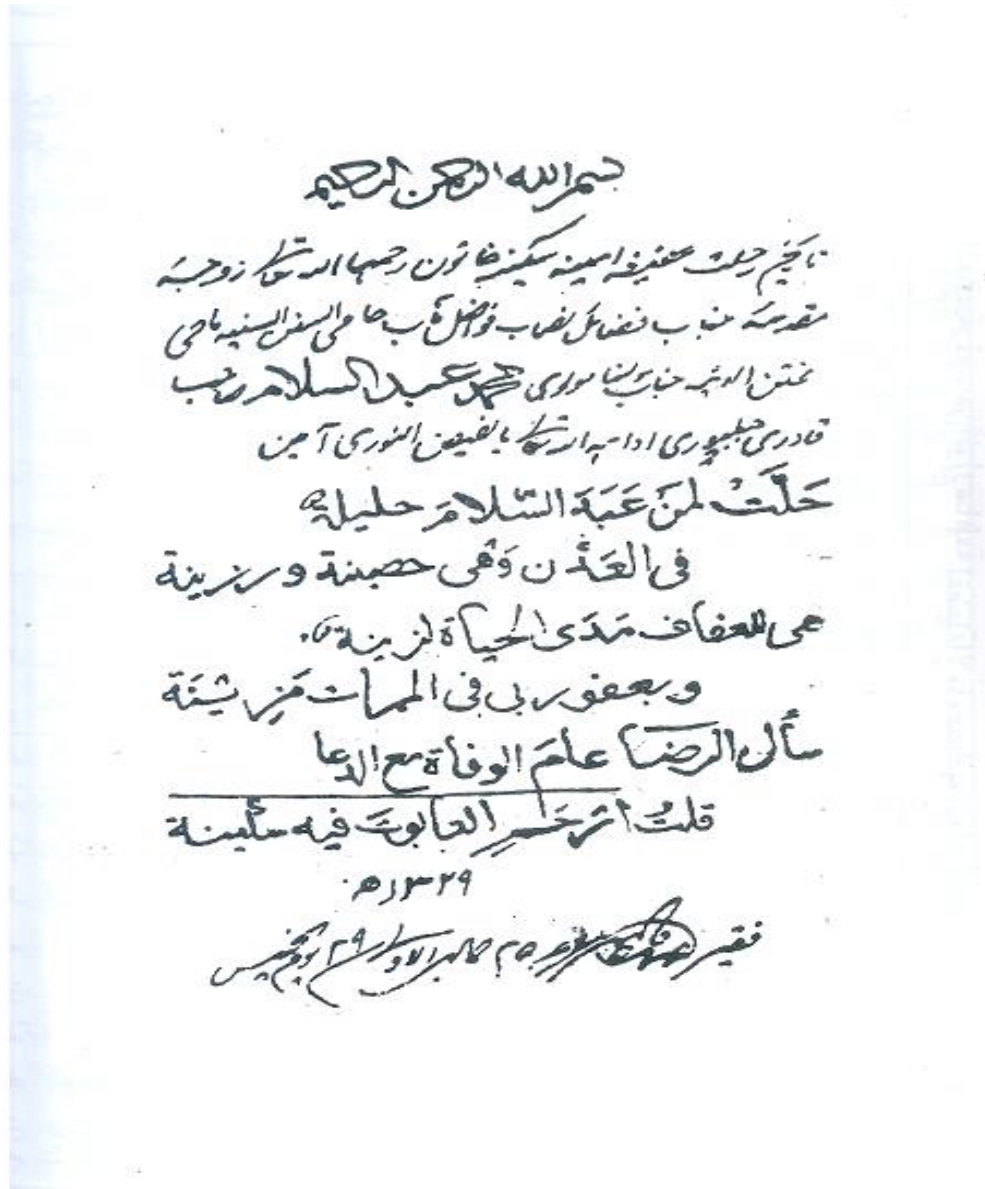 بسم الله الرحمن الرحيم
تاریخ رحلت عفیفہ امینہ سکینہ خاتون رحمہا اللہ تعالیٰ زوجہ
مقدسہ جناب فضائل نصاب فواضل مآب حامی السنن السنیہ ماحی
الفتن الدنیہ جناب مولٰنا مولوی محمد عبد السلام صاحب
قادری جبلپوری ادامہ اللہ تعالیٰ بالفیض النوری آمین
حَلَّتْ لِمَنْ عَبَدَ السَّلَامَ حليلة
في العَدْن وَهْى حصينة ورزينة
هى للعفاف مَدَى الحياة لزينة
و بعفو ربى فى الممات مَزِيْنَة
سأل الرضا عامَ الوفاة مع الدعا
قلتُ ارْحَمِ التابوتَ فيه سكينة
۱۳۲۹ھ
فقير ۲۵ جمادى الاولى ۲۹ پنجشنبہ